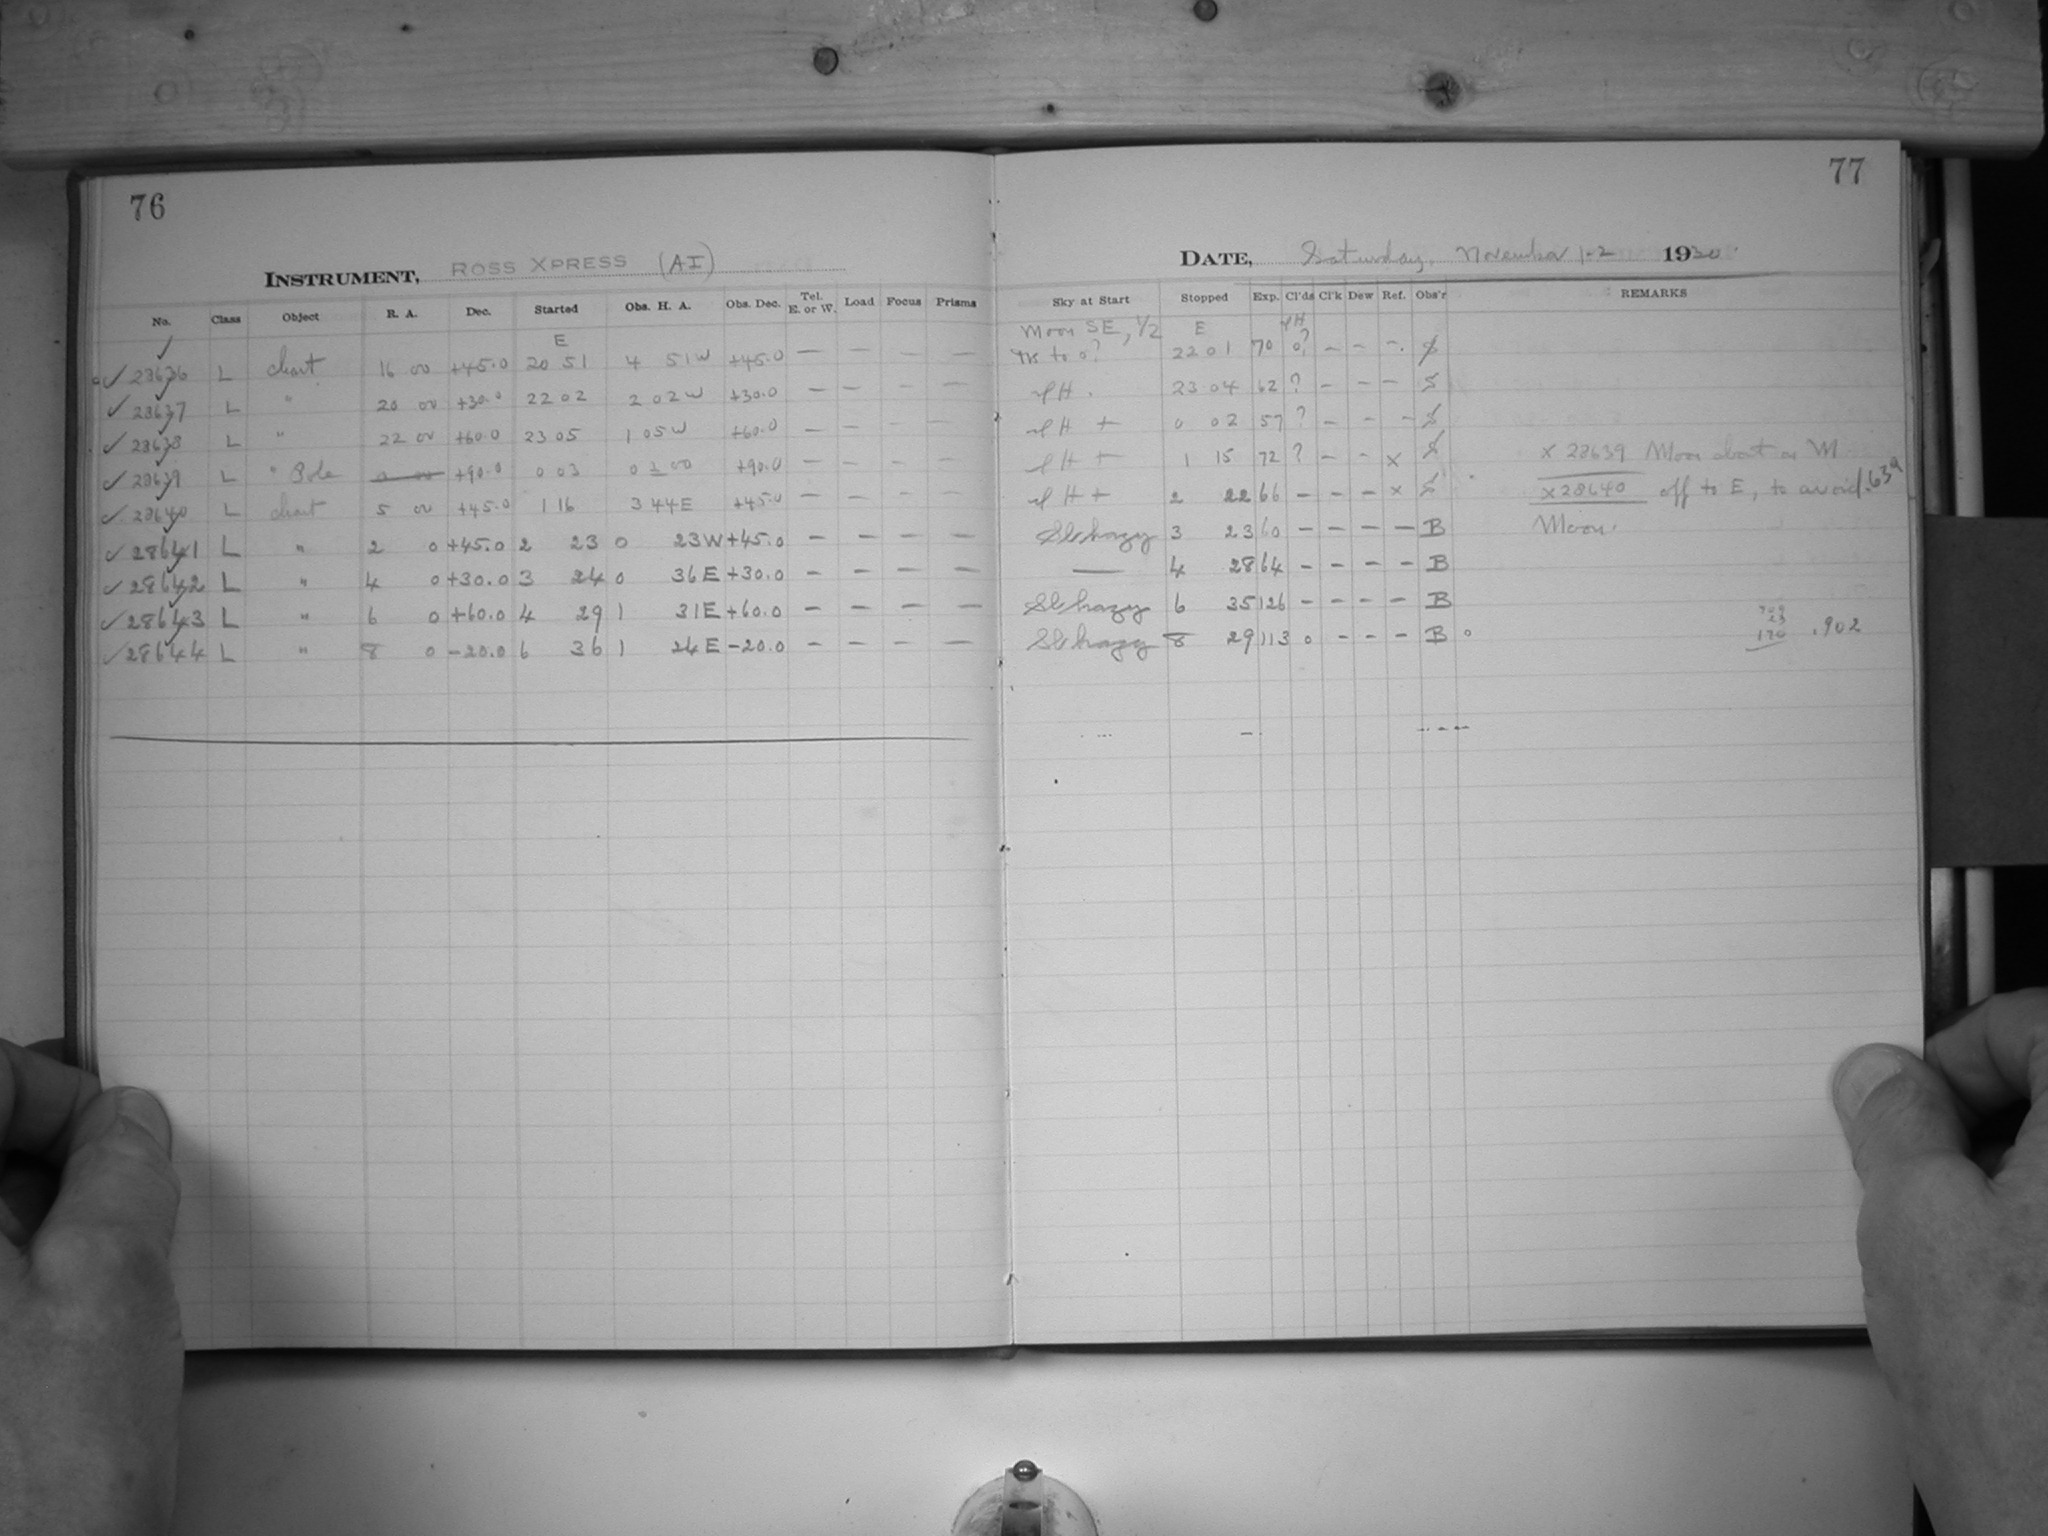 76
INSTRUMENT, ROSS XPRESS (AI)
No. Class Object R. A. Dec. Started Obs. H. A. Obs. Dec. Tel. E. or W. Load Focus Prisms
E
✓ 28636 L chart 16 00 +45.0 20 51 4 51W +45.0 — — — —
✓ 28637 L " 20 00 +30.0 22 02 2 02W +30.0 — — — —
✓ 28638 L " 22 00 +60.0 23 05 1 05W +60.0 — — — —
✓ 28639 L " Pole 0 00 +90.0 0 03 0 00 +90.0 — — — —
✓ 28640 L chart 5 00 +45.0 1 16 3 44E +45.0 — — — —
✓ 28641 L " 2 0 +45.0 2 23 0 23W +45.0 — — — —
✓ 28642 L " 4 0 +30.0 3 24 0 36E +30.0 — — — —
✓ 28643 L " 6 0 +60.0 4 29 1 31E +60.0 — — — —
✓ 28644 L " 8 0 -20.0 6 36 1 24E -20.0 — — — —
77
DATE, Saturday, November 1-2 1930
Sky at Start Stopped Exp. Cl'ds Cl'k Dew Ref. Obs'r REMARKS
Moon SE, 1/2 E
to 0? 22 01 70 0? — — —
H 23 04 62 ? — — —
H + 0 02 57 ? — — —
H + 1 15 72 ? — — x x 28639 Moon about on M
H + 2 22 66 — — — x x 28640 off to E, to avoid .639
Sl hazy 3 23 60 — — — — B Moon.
— 4 28 64 — — — — B
Sl hazy 6 35 126 — — — — B
Sl hazy 8 29 113 0 — — — B 0 170 .902